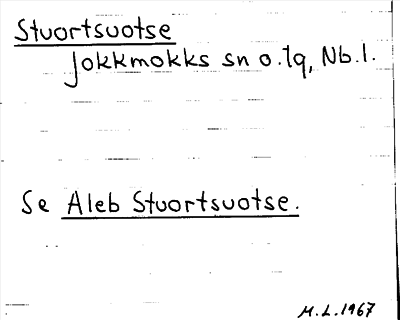 Stuortsuotse
Jokkmokks sn o. tq, Nb. l.
Se Aleb Stuortsuotse.
M.L. 1967